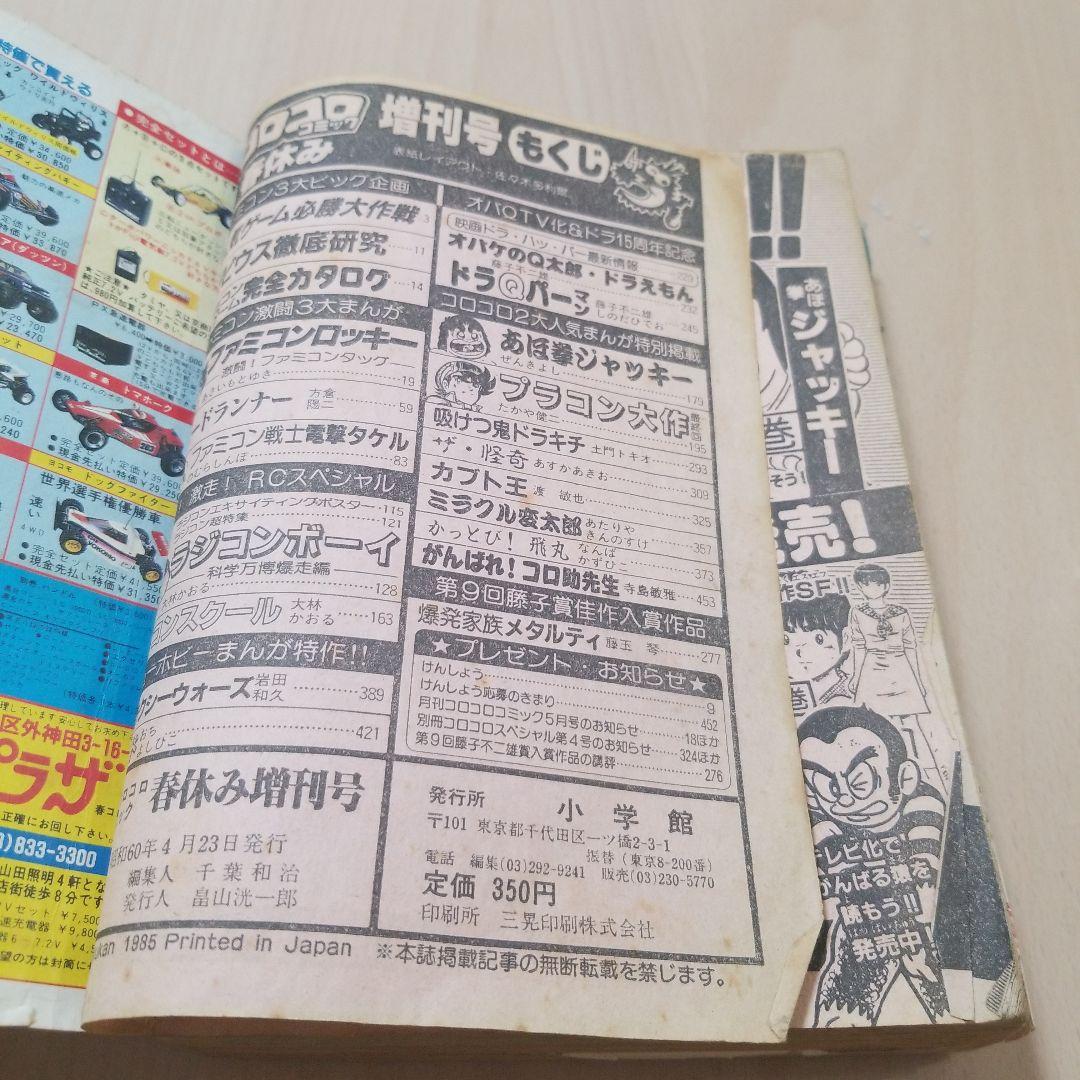 特価で買える
定価￥34,600
￥30,850
魅力の高速メカ
定価￥39,600
￥33,870
(ダッツン)
￥29,700
23,470
●完全セットとは
トマホーク
●完全セット定価￥39,600
●現金先払い特価￥29,250
ヨコモ ドッグファイター
世界選手権優勝車
速い
4WD
●完全セット定価￥41,
●現金先払い特価￥31,350
区外神田3-16-
プラザ
正確にお回し下さい。
)833-3300
山田照明4軒とな
店街徒歩8分です
Vセット ￥7,500
速充電器 ￥9,800
7.2V ￥4,5
望の方は封筒に
コロコロコミック
春休み
増刊号もくじ
表紙レイアウト・佐々木多利爾
コン3大ビッグ企画
ゲーム必勝大作戦 3
ウス徹底研究 11
完全カタログ 14
コン激闘3大まんが
ファミコンロッキー
激闘!ファミコンタッグ
さいもとゆき 19
ドランナー 方倉陽二 59
ファミコン戦士電撃タケル
むらしんぼ 83
激走!RCスペシャル
ジコンエキサイティングポスター 115
ジコン超特集 121
ラジコンボーイ
科学万博爆走編
大林かおる 128
コンスクール 大林かおる 163
ーホビーまんが特作!!
クシーウォーズ 岩田和久 389
421
春休み増刊号
昭和60年4月23日発行
編集人 千葉和治
発行人 畠山洸一郎
オバQTV化&ドラ15周年記念
映画ドラ・ハッ・パー最新情報 229
オバケのQ太郎・ドラえもん
藤子不二雄 232
ドラQパーマン 藤子不二雄 しのだひでお 245
コロコロ2大人気まんが特別掲載
あほ拳ジャッキー
ぜんきよし 179
プラコン大作 最終回
たかや健二 195
吸けつ鬼ドラキチ 土門トキオ 293
ザ・怪奇 あすかあきお 309
カブト王 渡敏也 325
ミラクル変太郎 あたりやきんのすけ 357
かっとび!飛丸 なんばかずひこ 373
がんばれ!コロ助先生 寺島敏雅 453
第9回藤子賞佳作入賞作品
爆発家族メタルティ 藤玉琴 277
★プレゼント・お知らせ★
けんしょう 9
けんしょう応募のきまり 452
月刊コロコロコミック5月号のお知らせ 18ほか
別冊コロコロスペシャル第4号のお知らせ 324ほか
第9回藤子不二雄賞入賞作品の講評 276
発行所 小学館
〒101 東京都千代田区一ツ橋2-3-1
振替(東京8-200番)
電話 編集(03)292-9241 販売(03)230-5770
定価 350円
印刷所 三晃印刷株式会社
kan 1985 Printed in Japan ※本誌掲載記事の無断転載を禁じます。
!!
あほ拳ジャッキー
巻
そう!
売!
作SF!!
巻
テレビ化で
がんばる猿を
読もう!!
発売中